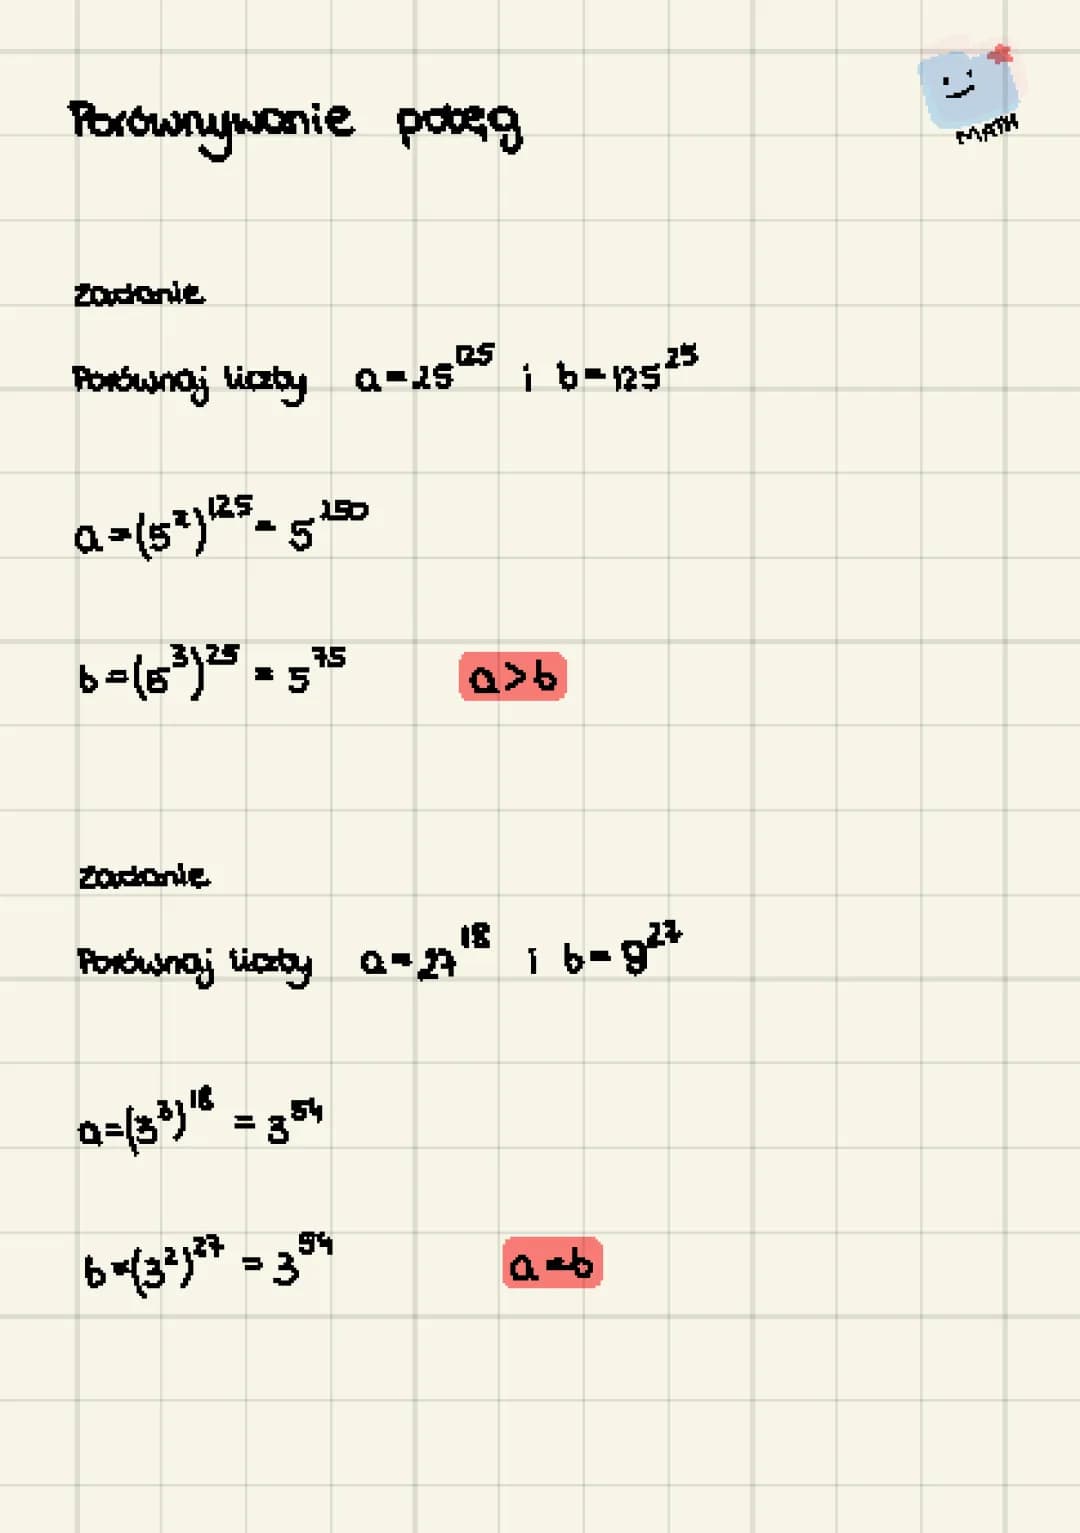 Porównywanie potęg
MATH
zadanie
Porównaj liczby a=25^125 i b=125^25
a=(5²)^125=5^250
b=(5³)^25=5^75 a>b
zadanie
Porównaj liczby a=27^18 i b=9^27
a=(3³)^18=3^54
b=(3²)^27=3^54 a=b